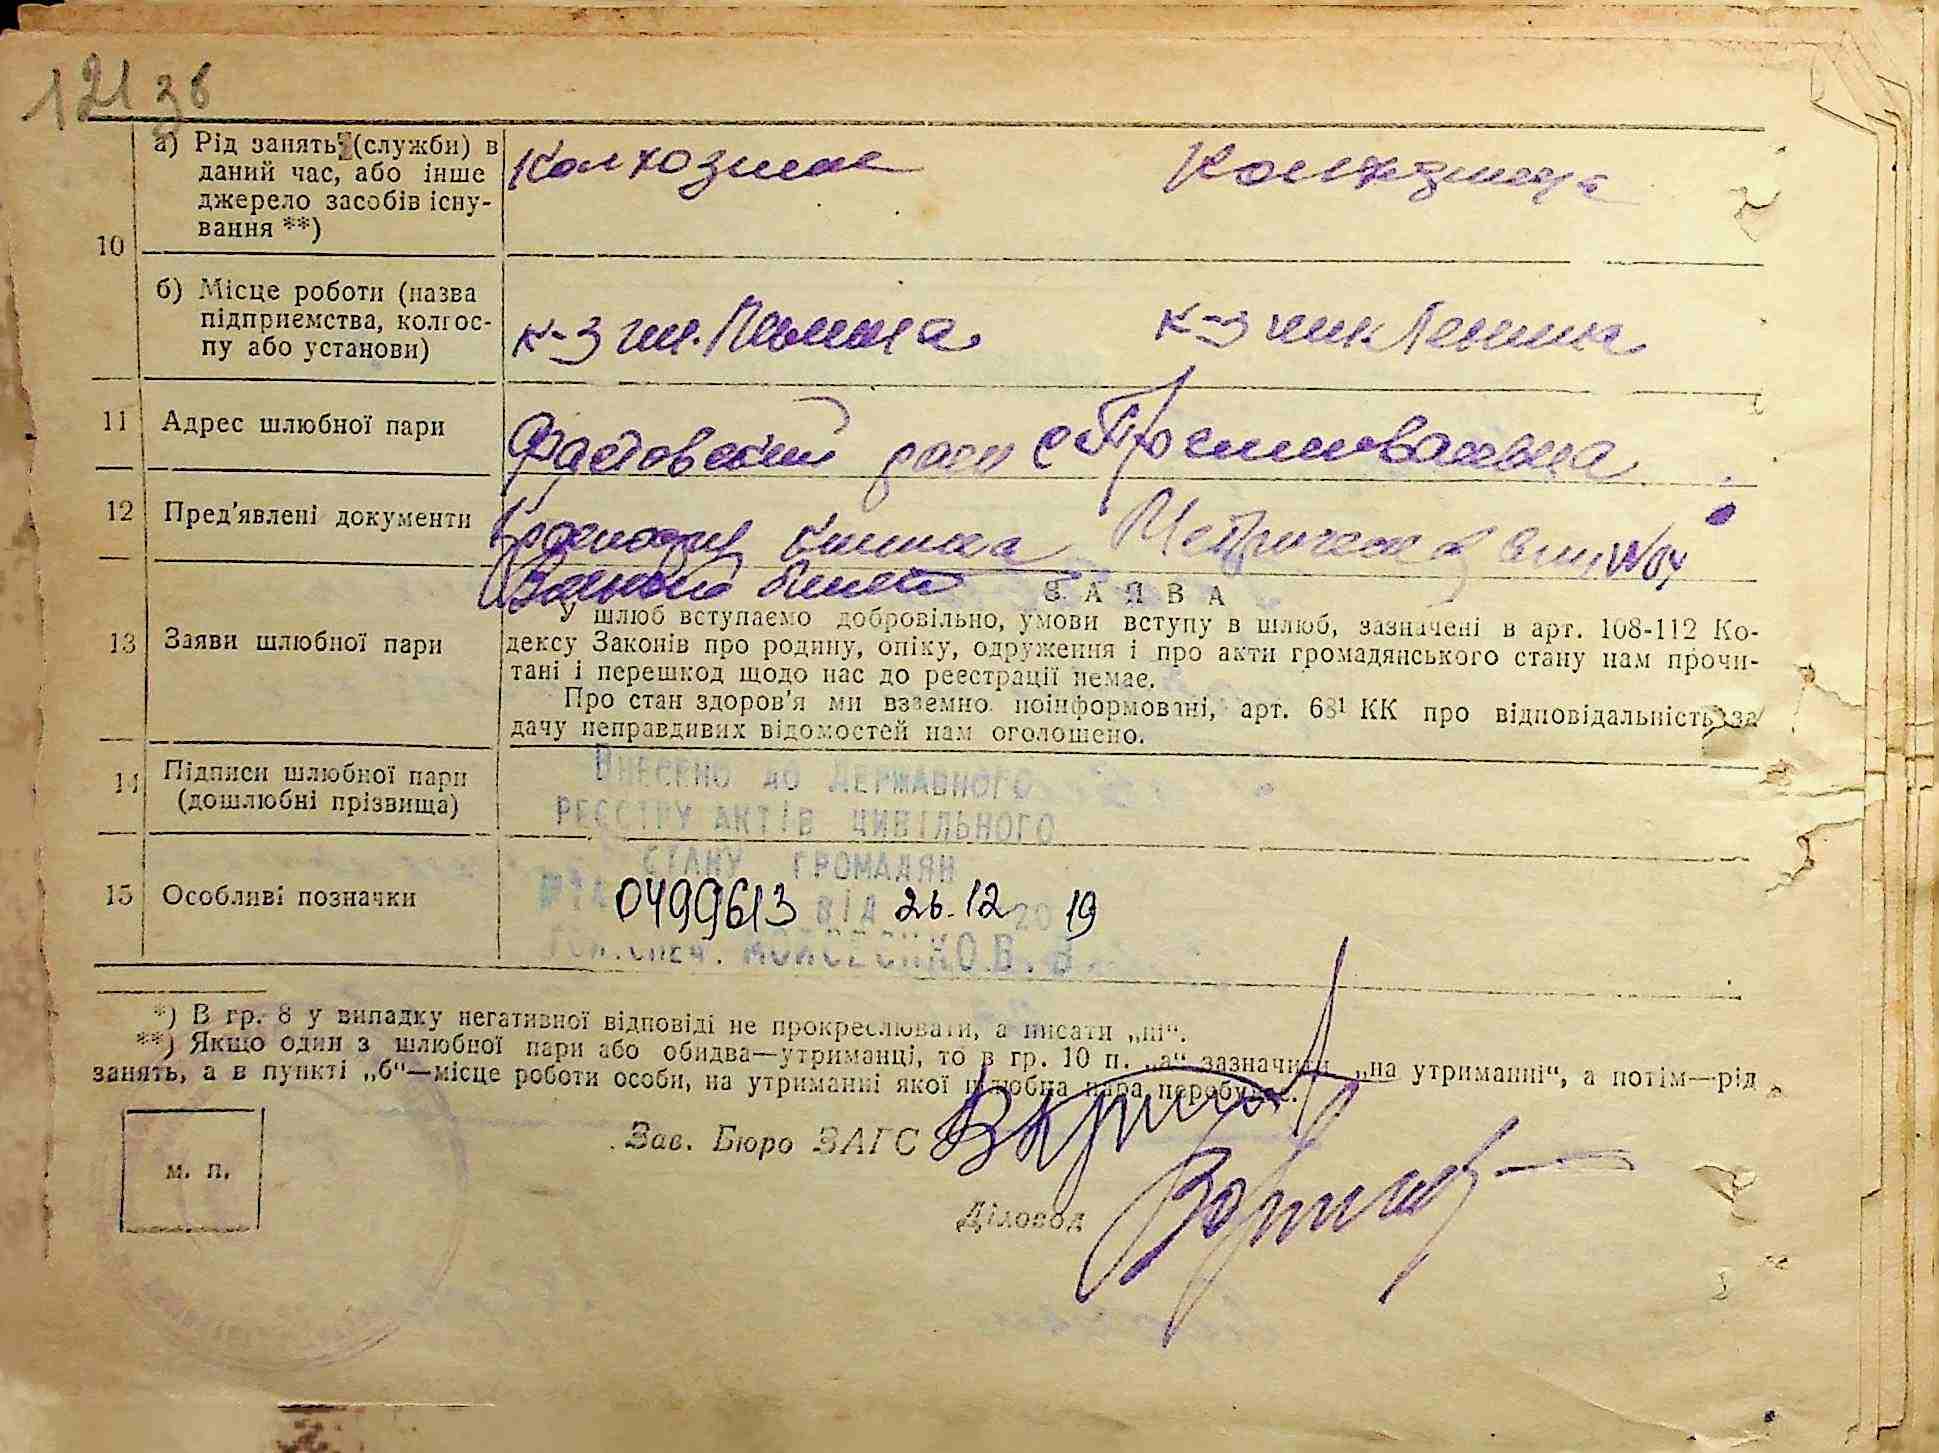 121 зв
а) Рід занять (служби) в
даний час, або інше
джерело засобів існу-
вання **)
Колхозник
Колхозница
10
б) Місце роботи (назва
підприємства, колгос-
пу або установи)
к-з им.
к-з им Ленина
11 Адрес шлюбної пари
Фастовский район с
12 Пред'явлені документи
книжка
Военный билет
13 Заяви шлюбної пари
ЗАЯВА
У шлюб вступаємо добровільно, умови вступу в шлюб, зазначені в арт. 108-112 Ко-
дексу Законів про родину, опіку, одруження і про акти громадянського стану нам прочи-
тані і перешкод щодо нас до реєстрації немає.
Про стан здоров'я ми взаємно поінформовані, арт. 68¹ КК про відповідальність за
дачу неправдивих відомостей нам оголошено.
14 Підписи шлюбної пари
(дошлюбні прізвища)
ВНЕСЕНО ДО ДЕРЖАВНОГО
РЕЄСТРУ АКТІВ ЦИВІЛЬНОГО
СТАНУ ГРОМАДЯН
15 Особливі позначки
0499613 від 26.12 2019
*) В гр. 8 у випадку негативної відповіді не прокреслювати, а писати „ні“.
**) Якщо один з шлюбної пари або обидва—утриманці, то в гр. 10 п. „а“ зазначити „на утриманні“, а потім—рід
занять, а в пункті „б“—місце роботи особи, на утриманні якої шлюбна пара перебуває.
м. п.
Зав. Бюро ЗАГС
Діловод